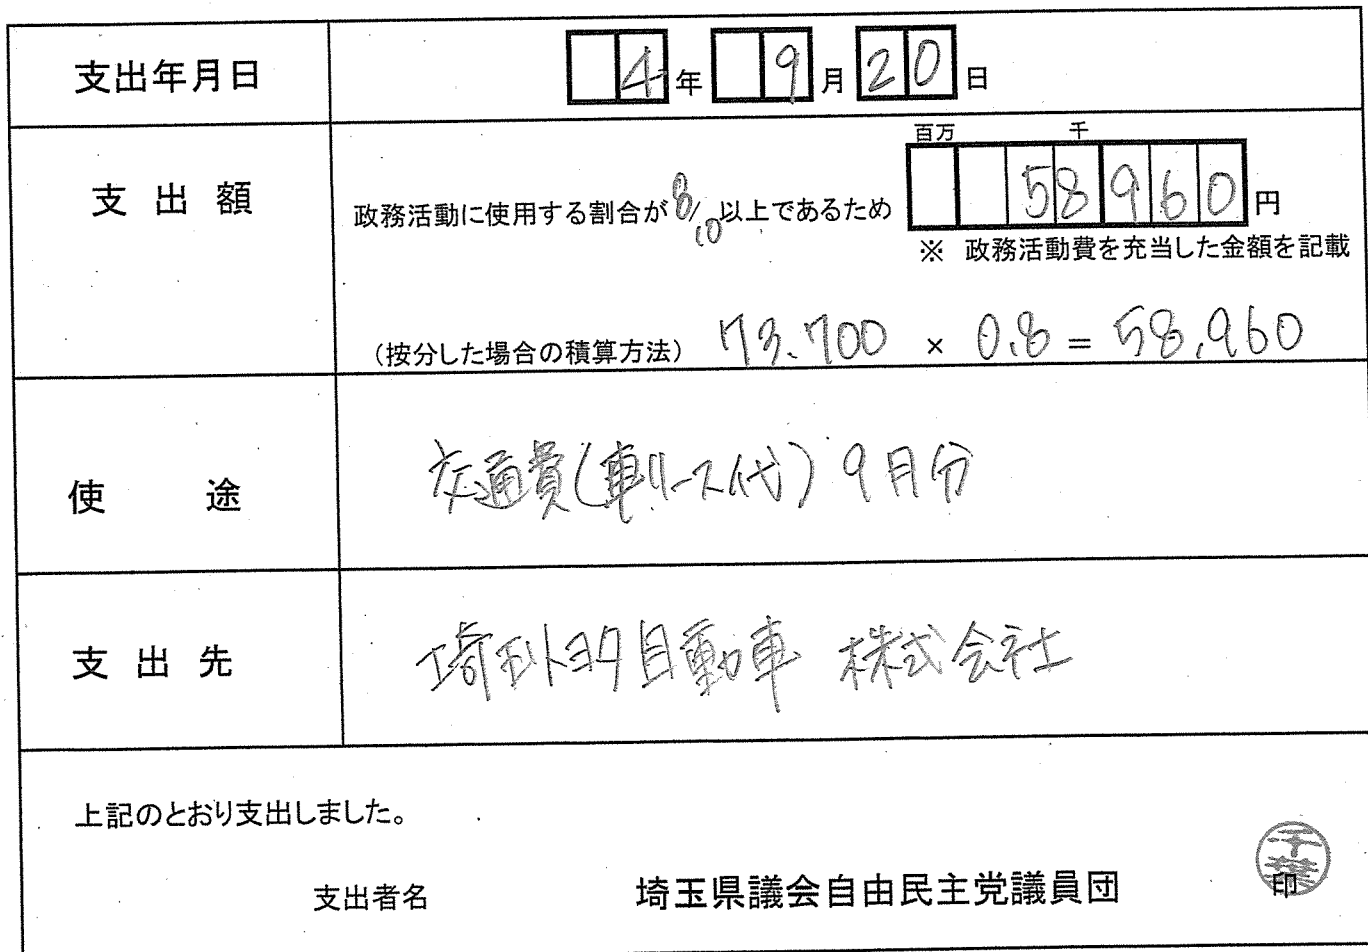 支出年月日
4年 9月20日
支出額
百万 千
政務活動に使用する割合が8/10以上であるため 58960円
※ 政務活動費を充当した金額を記載
(按分した場合の積算方法) 73.700 × 0.8 = 58,960
使途
交通費(車リース代) 9月分
支出先
埼玉トヨタ自動車 株式会社
上記のとおり支出しました。
支出者名 埼玉県議会自由民主党議員団 印
千葉